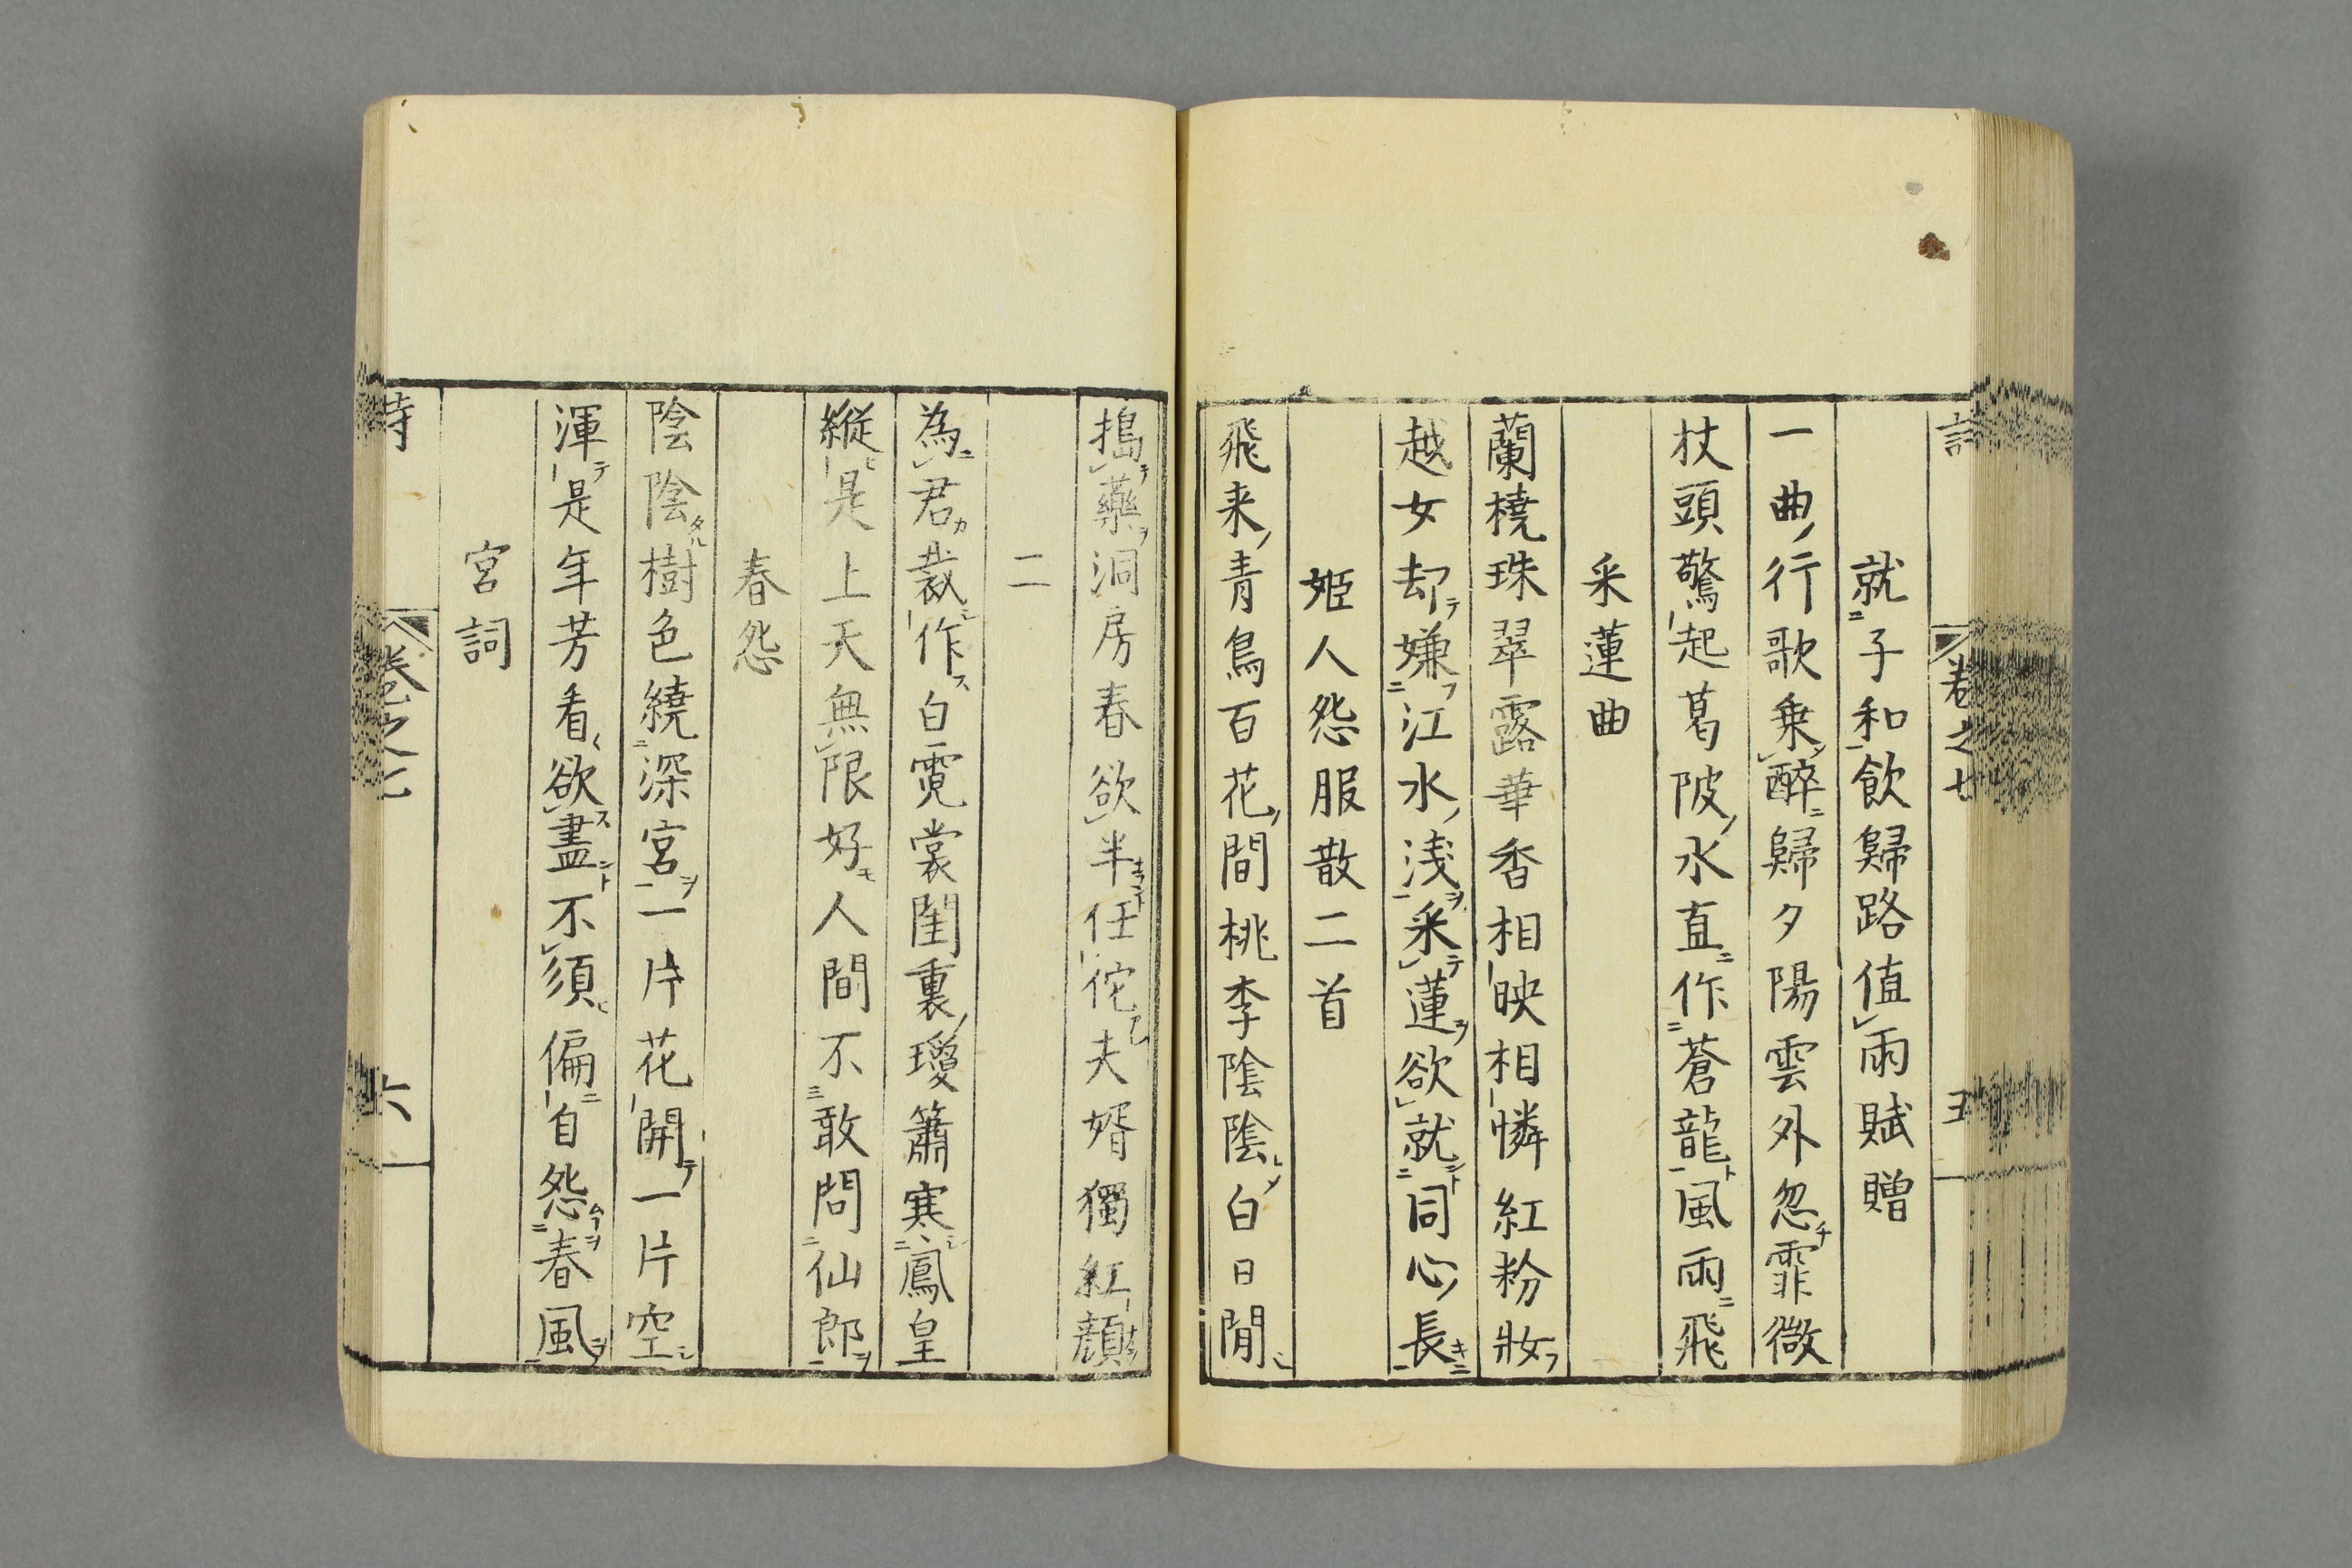 卷之七
就子和飲歸路值雨賦贈
一曲行歌乗醉歸夕陽雲外忽霏微
杖頭驚起葛陂水直作蒼龍風雨飛
采蓮曲
蘭橈珠翠露華香相映相憐紅粉妝
越女却嫌江水浅采蓮欲就同心長
姬人怨服散二首
飛来青鳥百花間桃李陰陰白日閒
搗藥洞房春欲半任佗夫婿獨紅顔
二
為君裁作白霓裳閨裏瓊簫寒鳳皇
縦是上天無限好人間不敢問仙郎
春怨
陰陰樹色繞深宮一片花開一片空
渾是年芳看欲盡不須偏自怨春風
宮詞
卷之七
六